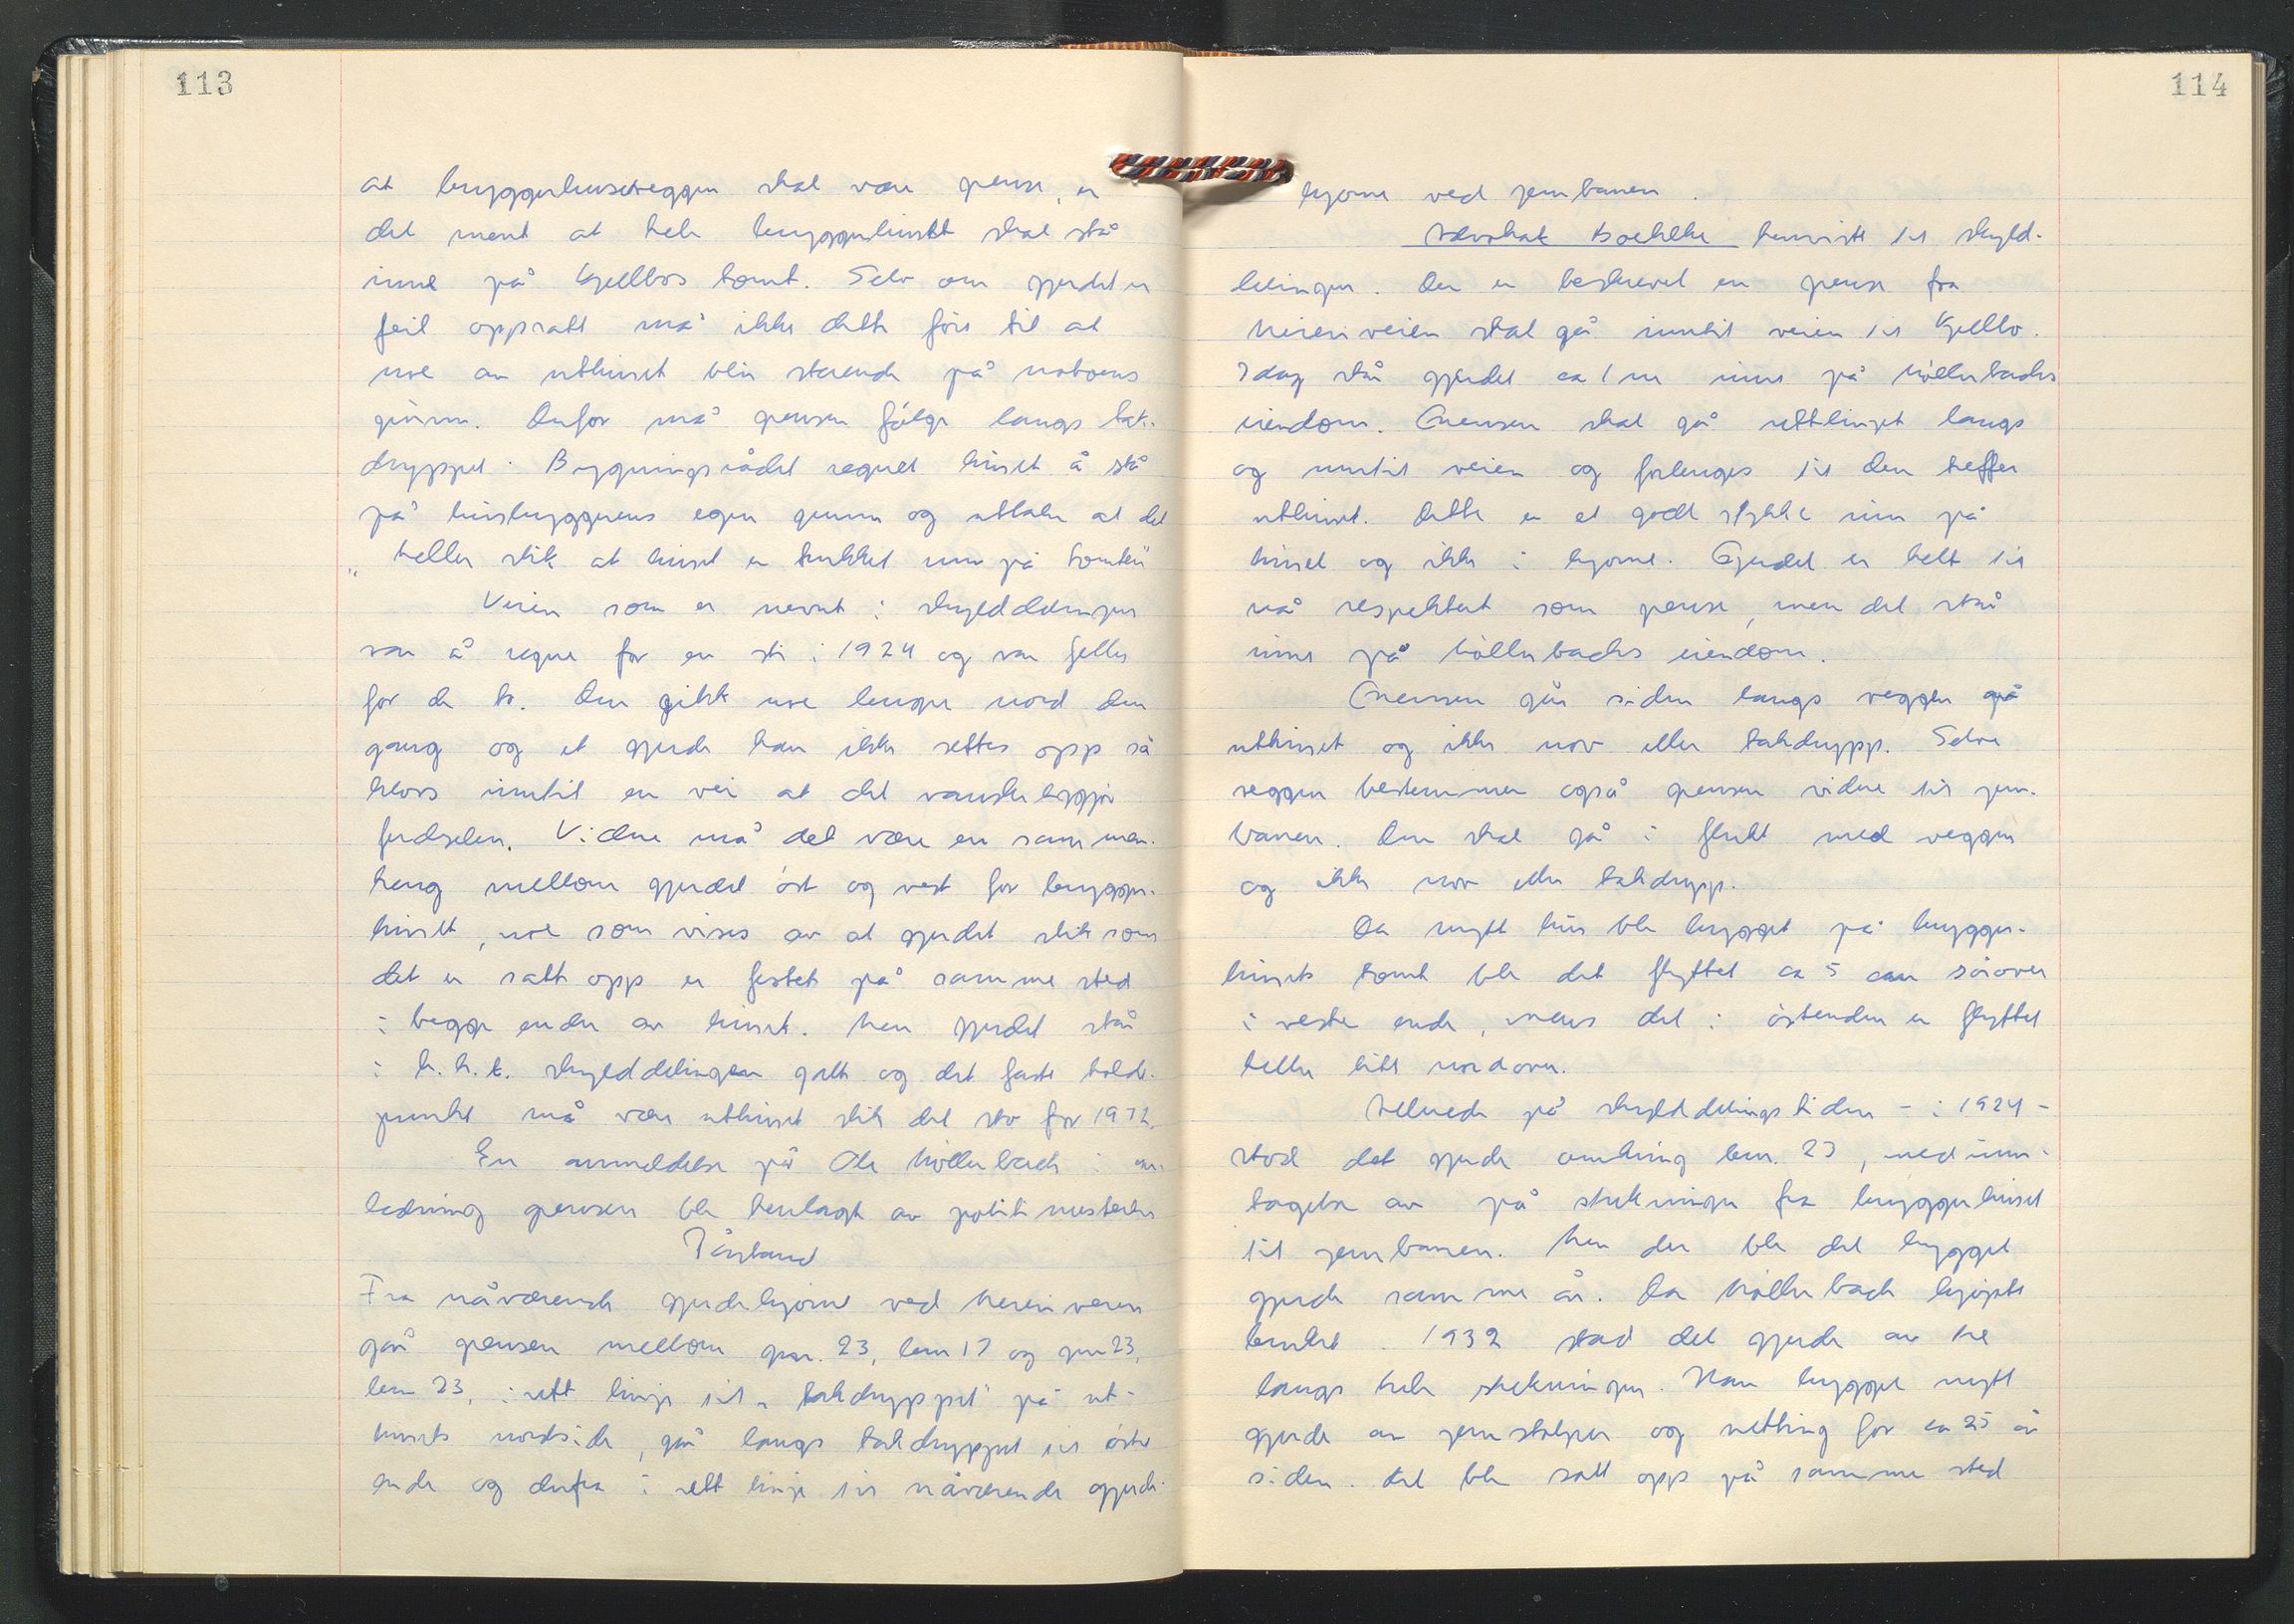 113
at bryggerhusveggen skal være grense, er
det ment at hele bryggerhuset skal stå
inne på Kjellbos tomt. Selv om gjerdet er
feil oppsatt må ikke dette føre til at
noe av uthuset blir stående på naboens
grunn. Derfor må grensen følge langs tak-
dryppet. Bygningsrådet regnet huset å stå
på husbyggerens egen grunn og uttaler at det
"heller slik at huset er trukket inn på tomten"
Veien som er nevnt i skylddelingen
var å regne for en sti i 1924 og var felles
for de to. Den gikk noe lenger nord den
gang og et gjerde kan ikke settes opp så
kloss inntil en vei at det vanskeliggjør
ferdselen. Videre må det være en sammen-
heng mellom gjerdet øst og vest for brygger-
huset, noe som vises av at gjerdet slik som
det er satt opp er festet på samme sted
i begge ender av huset. Men gjerdet står
i h.h.t. skylddelingen galt og det faste holde-
punkt må være uthuset slik det sto før 1972.
En anmeldelse på Ole Møllerbach i an-
ledning grensen ble henlagt av politimesteren
Påstand
Fra nåværende gjerdehjørne ved Meieriveien
går grensen mellom gnr. 23, bnr 17 og gnr 23,
bnr 23, i rett linje til "takdryppet" på ut-
husets nordside, går langs takdryppet til østre
ende og derfra i rett linje til nåværende gjerde-
114
hjørne ved jernbanen.
Advokat Boehlke henviste til skyld-
delingen. Der er beskrevet en grense fra
Meieriveien skal gå inntil veien til Kjellbo.
Idag står gjerdet ca 1 m inne på Møllerbachs
eiendom. Grensen skal gå rettlinjet langs
og inntil veien og forlenges til den treffer
uthuset. Dette er et godt stykke inn på
huset og ikke i hjørnet. Gjerdet er helt til
nå respektert som grense, men det står
inne på Møllerbachs eiendom.
Grensen går siden langs veggen på
uthuset og ikke nov eller takdrypp. Selve
veggen bestemmer også grensen videre til jern-
banen. Den skal gå i flukt med veggen
og ikke nov eller takdrypp.
Da nytt hus ble bygget på brygger-
husets tomt ble det flyttet ca 5 cm sørover
i vestre ende, mens det i østenden er flyttet
heller litt nordover.
Allerede på skylddelingstiden - i 1924 -
stod det gjerde omkring bnr. 23, med unn-
tagelse av på strekningen fra bryggerhuset
til jernbanen. Men der ble det bygget
gjerde samme år. Da Møllerbach kjøpte
bruket i 1932 stod det gjerde av tre
langs hele strekningen. Han bygget nytt
gjerde av jernstolper og netting for ca 25 år
siden. Det ble satt opp på samme sted